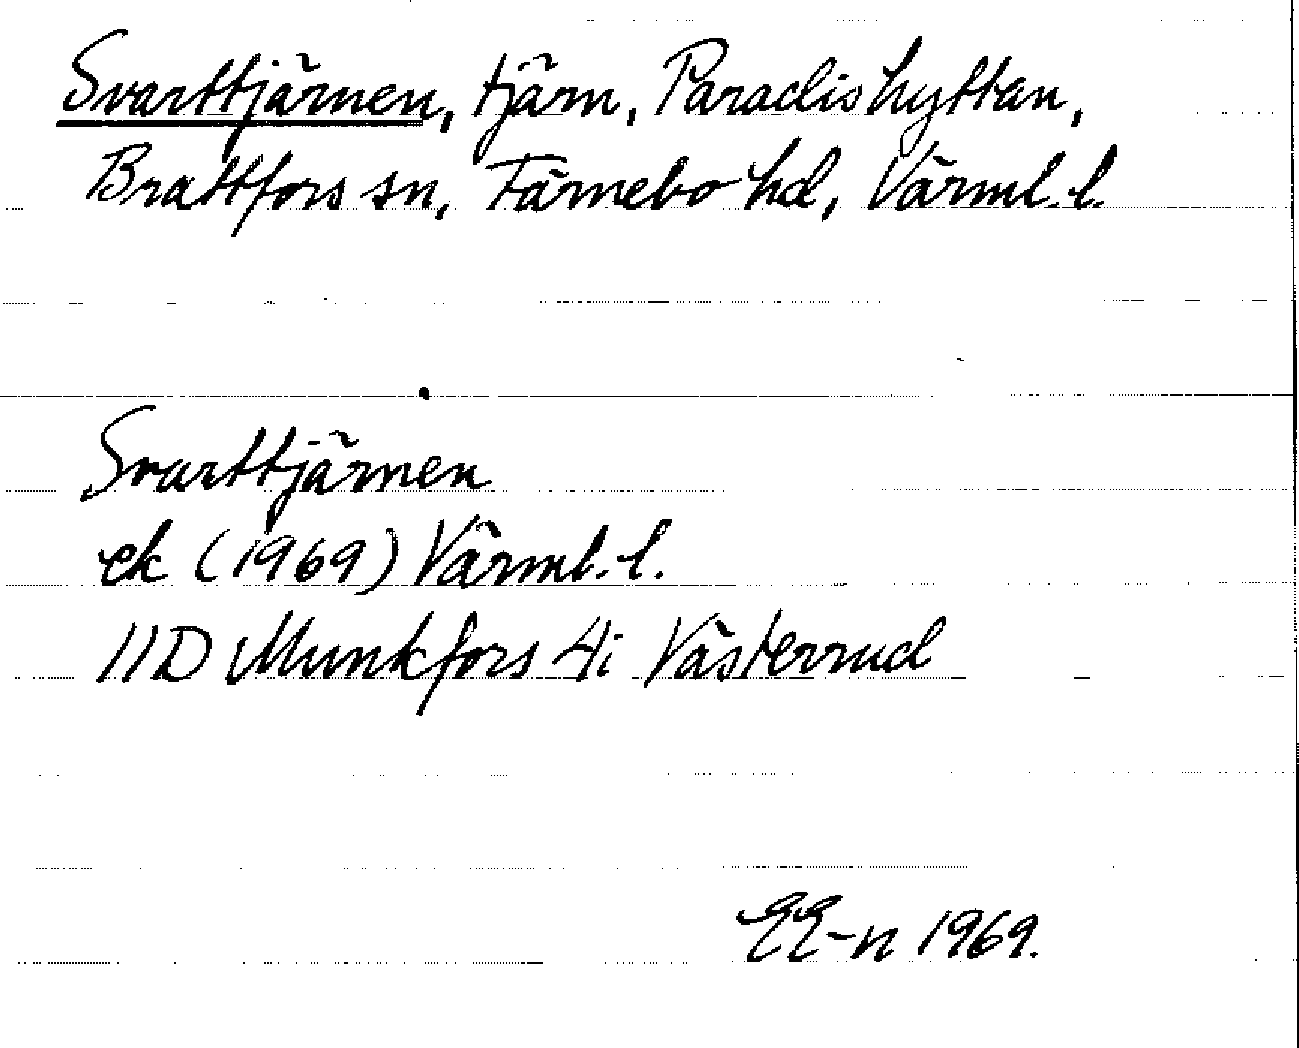 Svarttjärnen, tjärn, Paradishyttan,
Brattfors sn, Färnebo hd, Värml. l.
Svarttjärnen
ek (1969) Värml. l.
11D Munkfors 4i Västerrud
EE-n 1969.